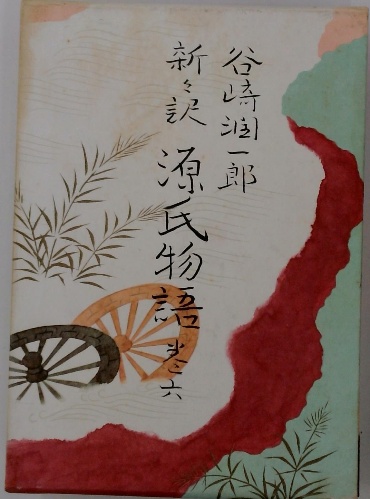 谷崎潤一郎
新々訳 源氏物語 巻六